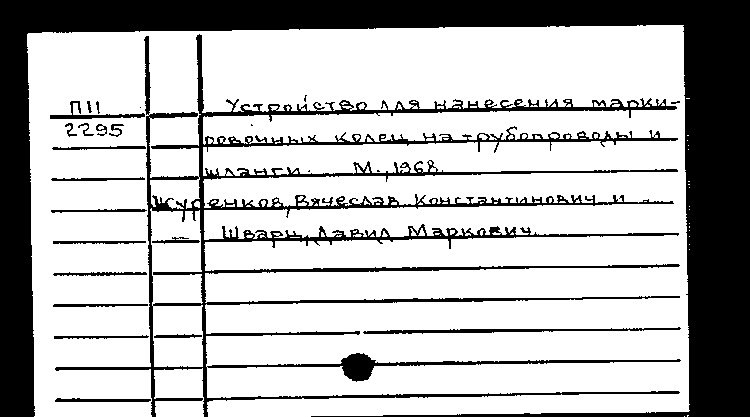 П11
2295
Устройство для нанесения марки-
ровочных колец на трубопроводы и
шланги. М., 1968.
Журенков, Вячеслав Константинович и
Шварц, Давид Маркович.